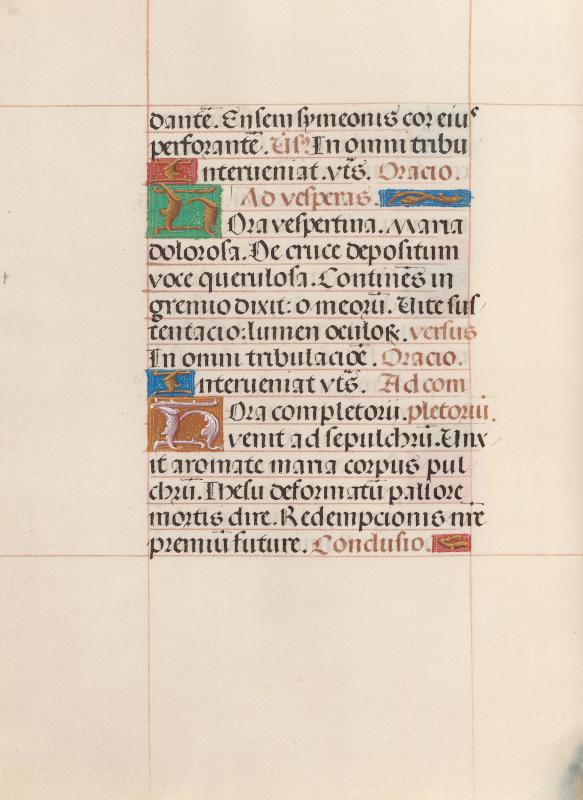 dantē. Ensem symeonis cor eiuˢ
perforantē. Vs? In omni tribu
Interueniat. vt̄s. Oracio.
Ad vesperas.
Hora vespertina. Maria
dolorosa. De cruce depositum
voce querulosa. Continēs in
gremio dixit: o meorū. Vite sus
tentacio: lumen oculoꝝ. versus
In omni tribulaciōe. Oracio.
Interueniat vt̄s. Ad com
Hora completorii. pletoriū.
venit ad sepulchrū. Vnx
it aromate maria corpus pul
chrū. Ihesu deformatū pallore
mortis dire. Redempcionis nr̄e
premiū future. Conclusio.